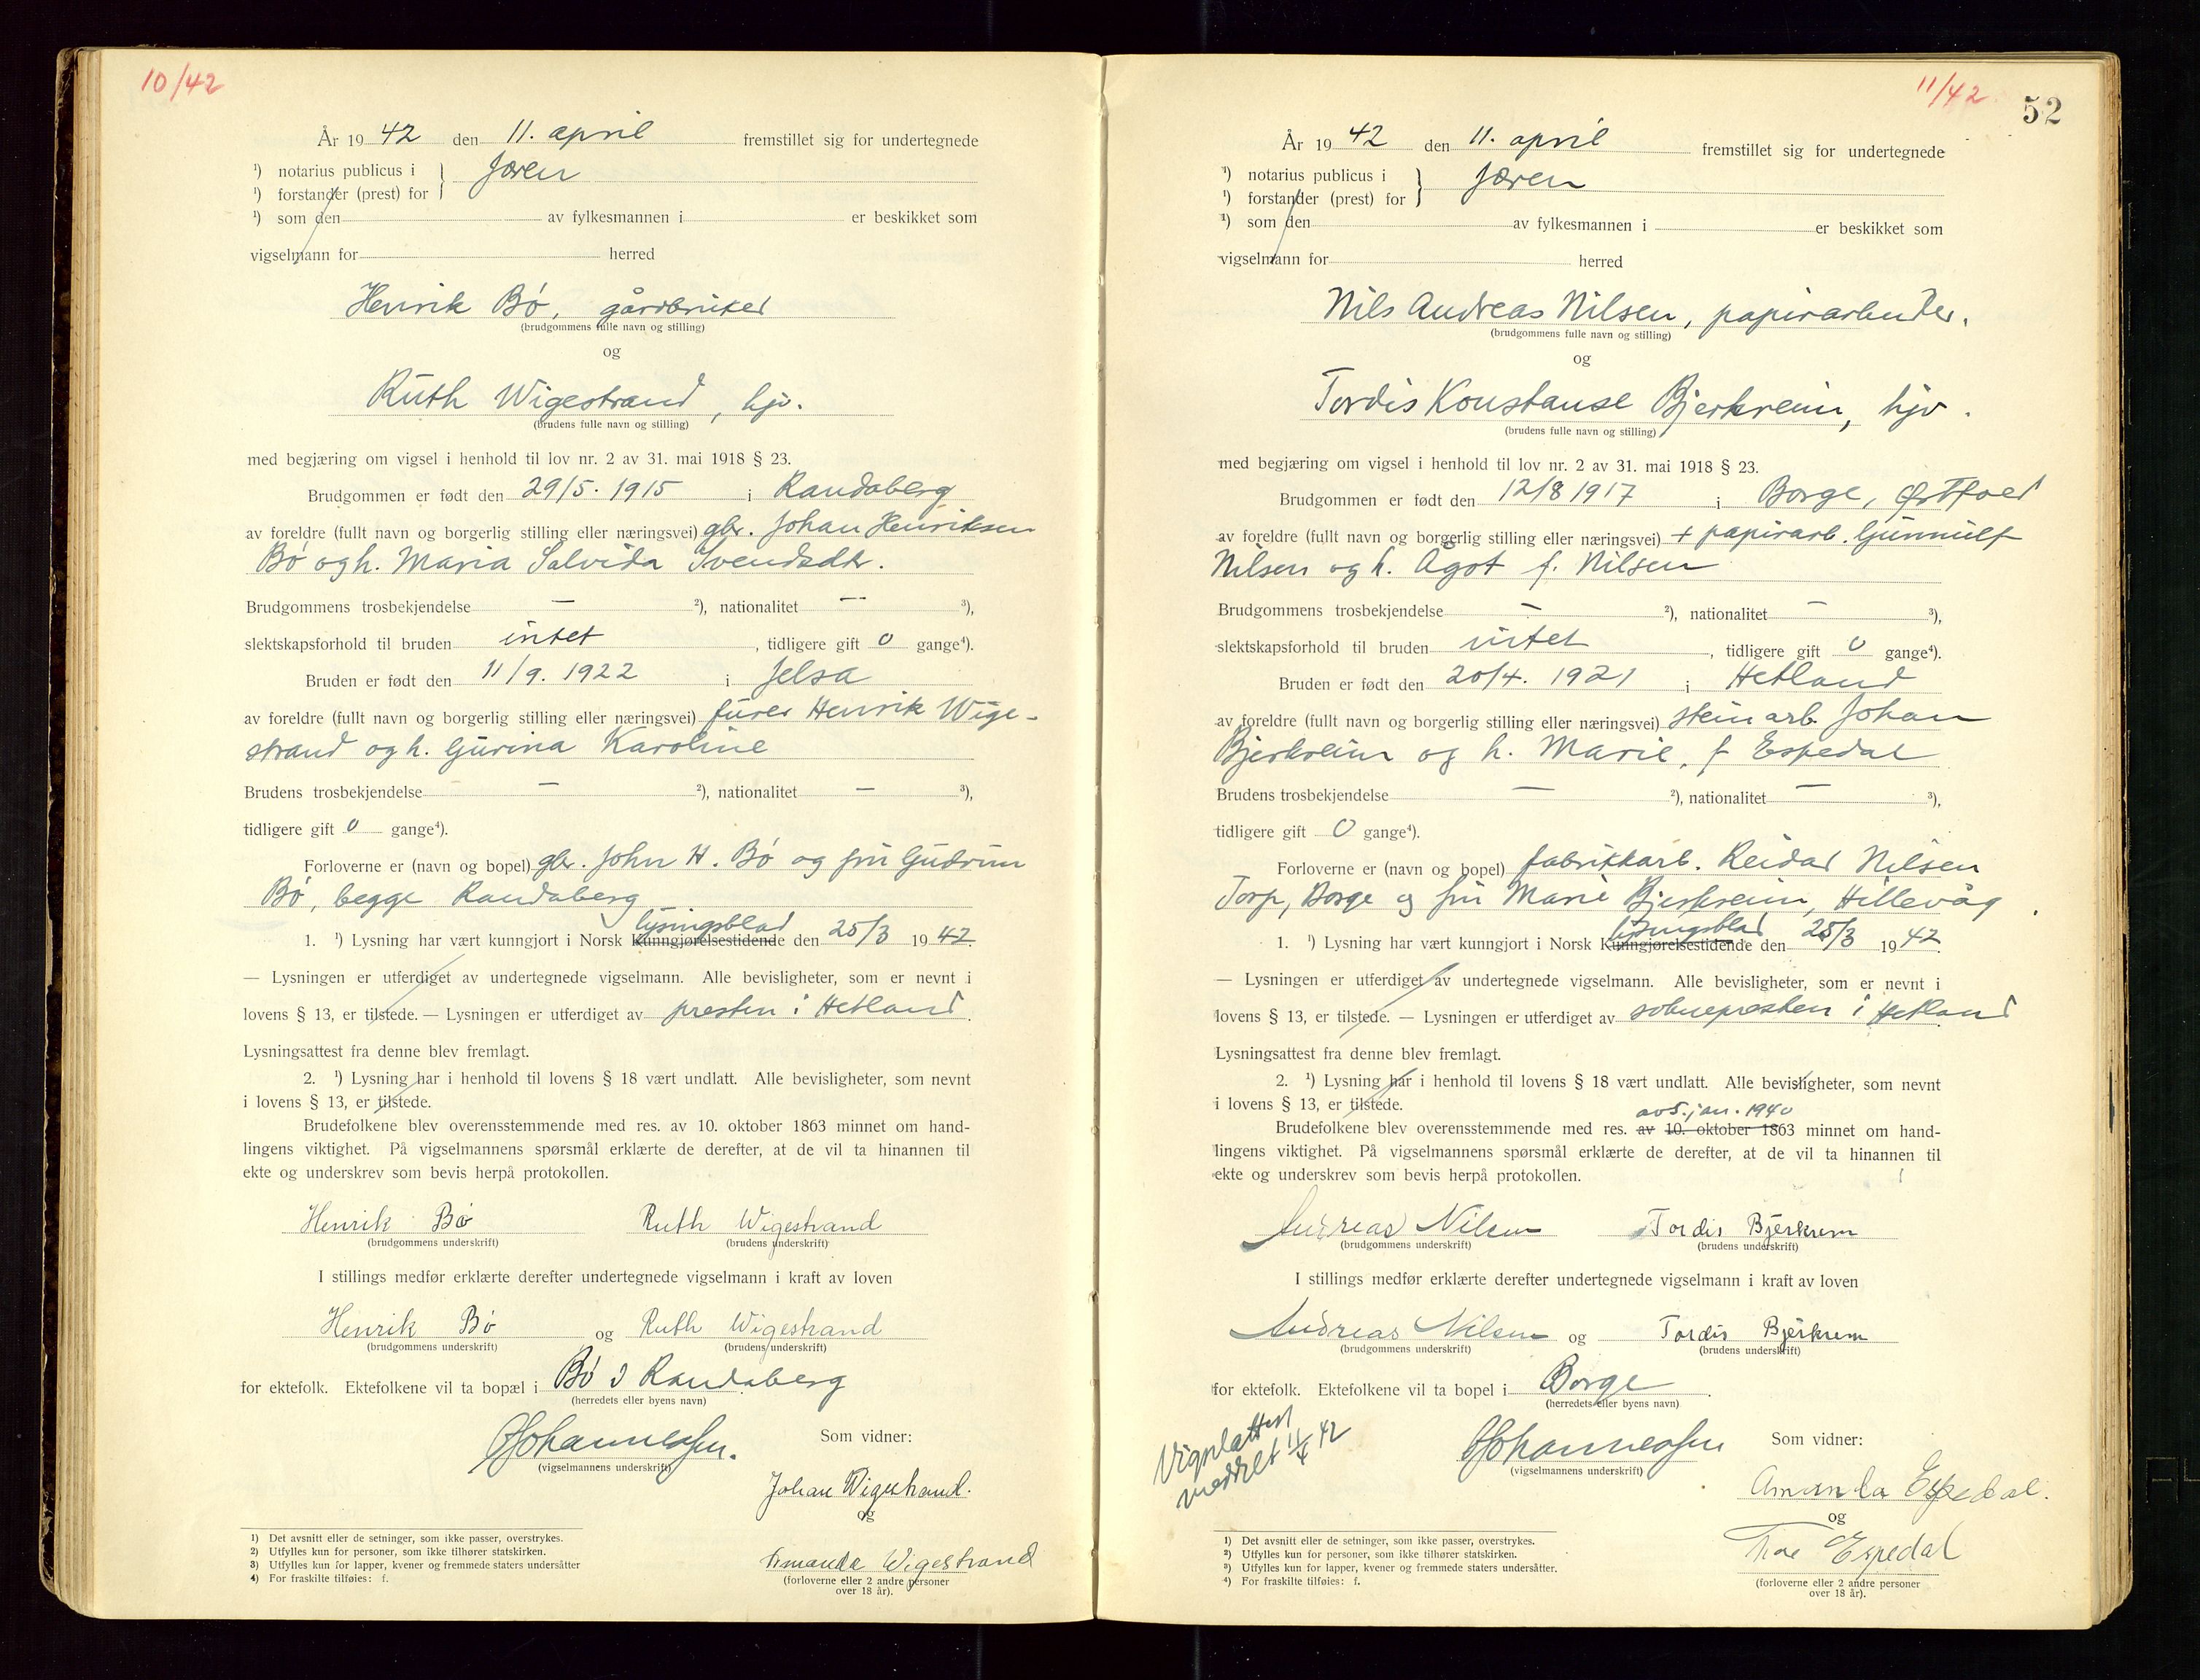 10/42
År 19 42 den 11. april fremstillet sig for undertegnede
¹) notarius publicus i } Jæren
¹) forstander (prest) for
¹) som den av fylkesmannen i er beskikket som
vigselmann for herred
Henrik Bø, gårdbruker
(brudgommens fulle navn og stilling)
og
Ruth Wigestrand, hjv.
(brudens fulle navn og stilling)
med begjæring om vigsel i henhold til lov nr. 2 av 31. mai 1918 § 23.
Brudgommen er født den 29/5. 1915 i Randaberg
av foreldre (fullt navn og borgerlig stilling eller næringsvei) gbr. Johan Henriksen
Bø og h. Maria Salvida Svendsdtr.
Brudgommens trosbekjendelse — ²), nationalitet — ³),
slektskapsforhold til bruden intet, tidligere gift 0 gange⁴).
Bruden er født den 11/9. 1922 i Jelsa
av foreldre (fullt navn og borgerlig stilling eller næringsvei) furer Henrik Wige-
strand og h. Gurina Karoline
Brudens trosbekjendelse — ²), nationalitet — ³),
tidligere gift 0 gange⁴).
Forloverne er (navn og bopel) gbr. John H. Bø og fru Gudrun
Bø, begge Randaberg
lysingsblad
1. ¹) Lysning har vært kunngjort i Norsk Kunngjørelsestidende den 25/3 19 42.
— Lysningen er utferdiget av undertegnede vigselmann. Alle bevisligheter, som er nevnt i
lovens § 13, er tilstede. — Lysningen er utferdiget av presten i Hetland.
Lysningsattest fra denne blev fremlagt.
2. ¹) Lysning har i henhold til lovens § 18 vært undlatt. Alle bevisligheter, som nevnt
i lovens § 13, er tilstede.
Brudefolkene blev overensstemmende med res. av 10. oktober 1863 minnet om hand-
lingens viktighet. På vigselmannens spørsmål erklærte de derefter, at de vil ta hinannen til
ekte og underskrev som bevis herpå protokollen.
Henrik Bø Ruth Wigestrand
(brudgommens underskrift) (brudens underskrift)
I stillings medfør erklærte derefter undertegnede vigselmann i kraft av loven
Henrik Bø og Ruth Wigestrand
(brudgommens underskrift) (brudens underskrift)
for ektefolk. Ektefolkene vil ta bopæl i Bø i Randaberg
(herredets eller byens navn)
Johannessen.
(vigselmannens underskrift)
Som vidner:
Johan Wigestrand.
og
Amanda Wigestrand
(forloverne eller 2 andre personer
over 18 år).
1) Det avsnitt eller de setninger, som ikke passer, overstrykes.
2) Utfylles kun for personer, som ikke tilhører statskirken.
3) Utfylles kun for lapper, kvener og fremmede staters undersåtter
4) For fraskilte tilføies: f.
11/42
52
År 19 42 den 11. april fremstillet sig for undertegnede
¹) notarius publicus i } Jæren
¹) forstander (prest) for
¹) som den av fylkesmannen i er beskikket som
vigselmann for herred
Nils Andreas Nilsen, papirarbeider.
(brudgommens fulle navn og stilling)
og
Tordis Konstanse Bjerkreim, hjv.
(brudens fulle navn og stilling)
med begjæring om vigsel i henhold til lov nr. 2 av 31. mai 1918 § 23.
Brudgommen er født den 12/8 1917 i Borge, Østfold
av foreldre (fullt navn og borgerlig stilling eller næringsvei) + papirarb. Gunnulf
Nilsen og h. Ågot f. Nilsen
Brudgommens trosbekjendelse — ²), nationalitet — ³),
slektskapsforhold til bruden intet, tidligere gift 0 gange⁴).
Bruden er født den 20/4. 1921 i Hetland
av foreldre (fullt navn og borgerlig stilling eller næringsvei) steinarb. Johan
Bjerkreim og h. Marie, f Espedal
Brudens trosbekjendelse — ²), nationalitet — ³),
tidligere gift 0 gange⁴).
Forloverne er (navn og bopel) fabrikkarb. Reidar Nilsen
Torp, Borge og fru Marie Bjerkreim, Hillevåg.
lysingsblad
1. ¹) Lysning har vært kunngjort i Norsk Kunngjørelsestidende den 25/3 19 42
— Lysningen er utferdiget av undertegnede vigselmann. Alle bevisligheter, som er nevnt i
lovens § 13, er tilstede. — Lysningen er utferdiget av soknepresten i Hetland
Lysningsattest fra denne blev fremlagt.
2. ¹) Lysning har i henhold til lovens § 18 vært undlatt. Alle bevisligheter, som nevnt
i lovens § 13, er tilstede.
av 5. jan. 1940
Brudefolkene blev overensstemmende med res. av 10. oktober 1863 minnet om hand-
lingens viktighet. På vigselmannens spørsmål erklærte de derefter, at de vil ta hinannen til
ekte og underskrev som bevis herpå protokollen.
Andreas Nilsen Tordis Bjerkrem
(brudgommens underskrift) (brudens underskrift)
I stillings medfør erklærte derefter undertegnede vigselmann i kraft av loven
Andreas Nilsen og Tordis Bjerkrem
(brudgommens underskrift) (brudens underskrift)
for ektefolk. Ektefolkene vil ta bopel i Borge.
(herredets eller byens navn)
Vigselattest
meddelt 11/4 42
Johannessen
(vigselmannens underskrift)
Som vidner:
Amanda Espedal.
og
Thore Espedal
(forloverne eller 2 andre personer
over 18 år).
1) Det avsnitt eller de setninger, som ikke passer, overstrykes.
2) Utfylles kun for personer, som ikke tilhører statskirken.
3) Utfylles kun for lapper, kvener og fremmede staters undersåtter.
4) For fraskilte tilføies: f.